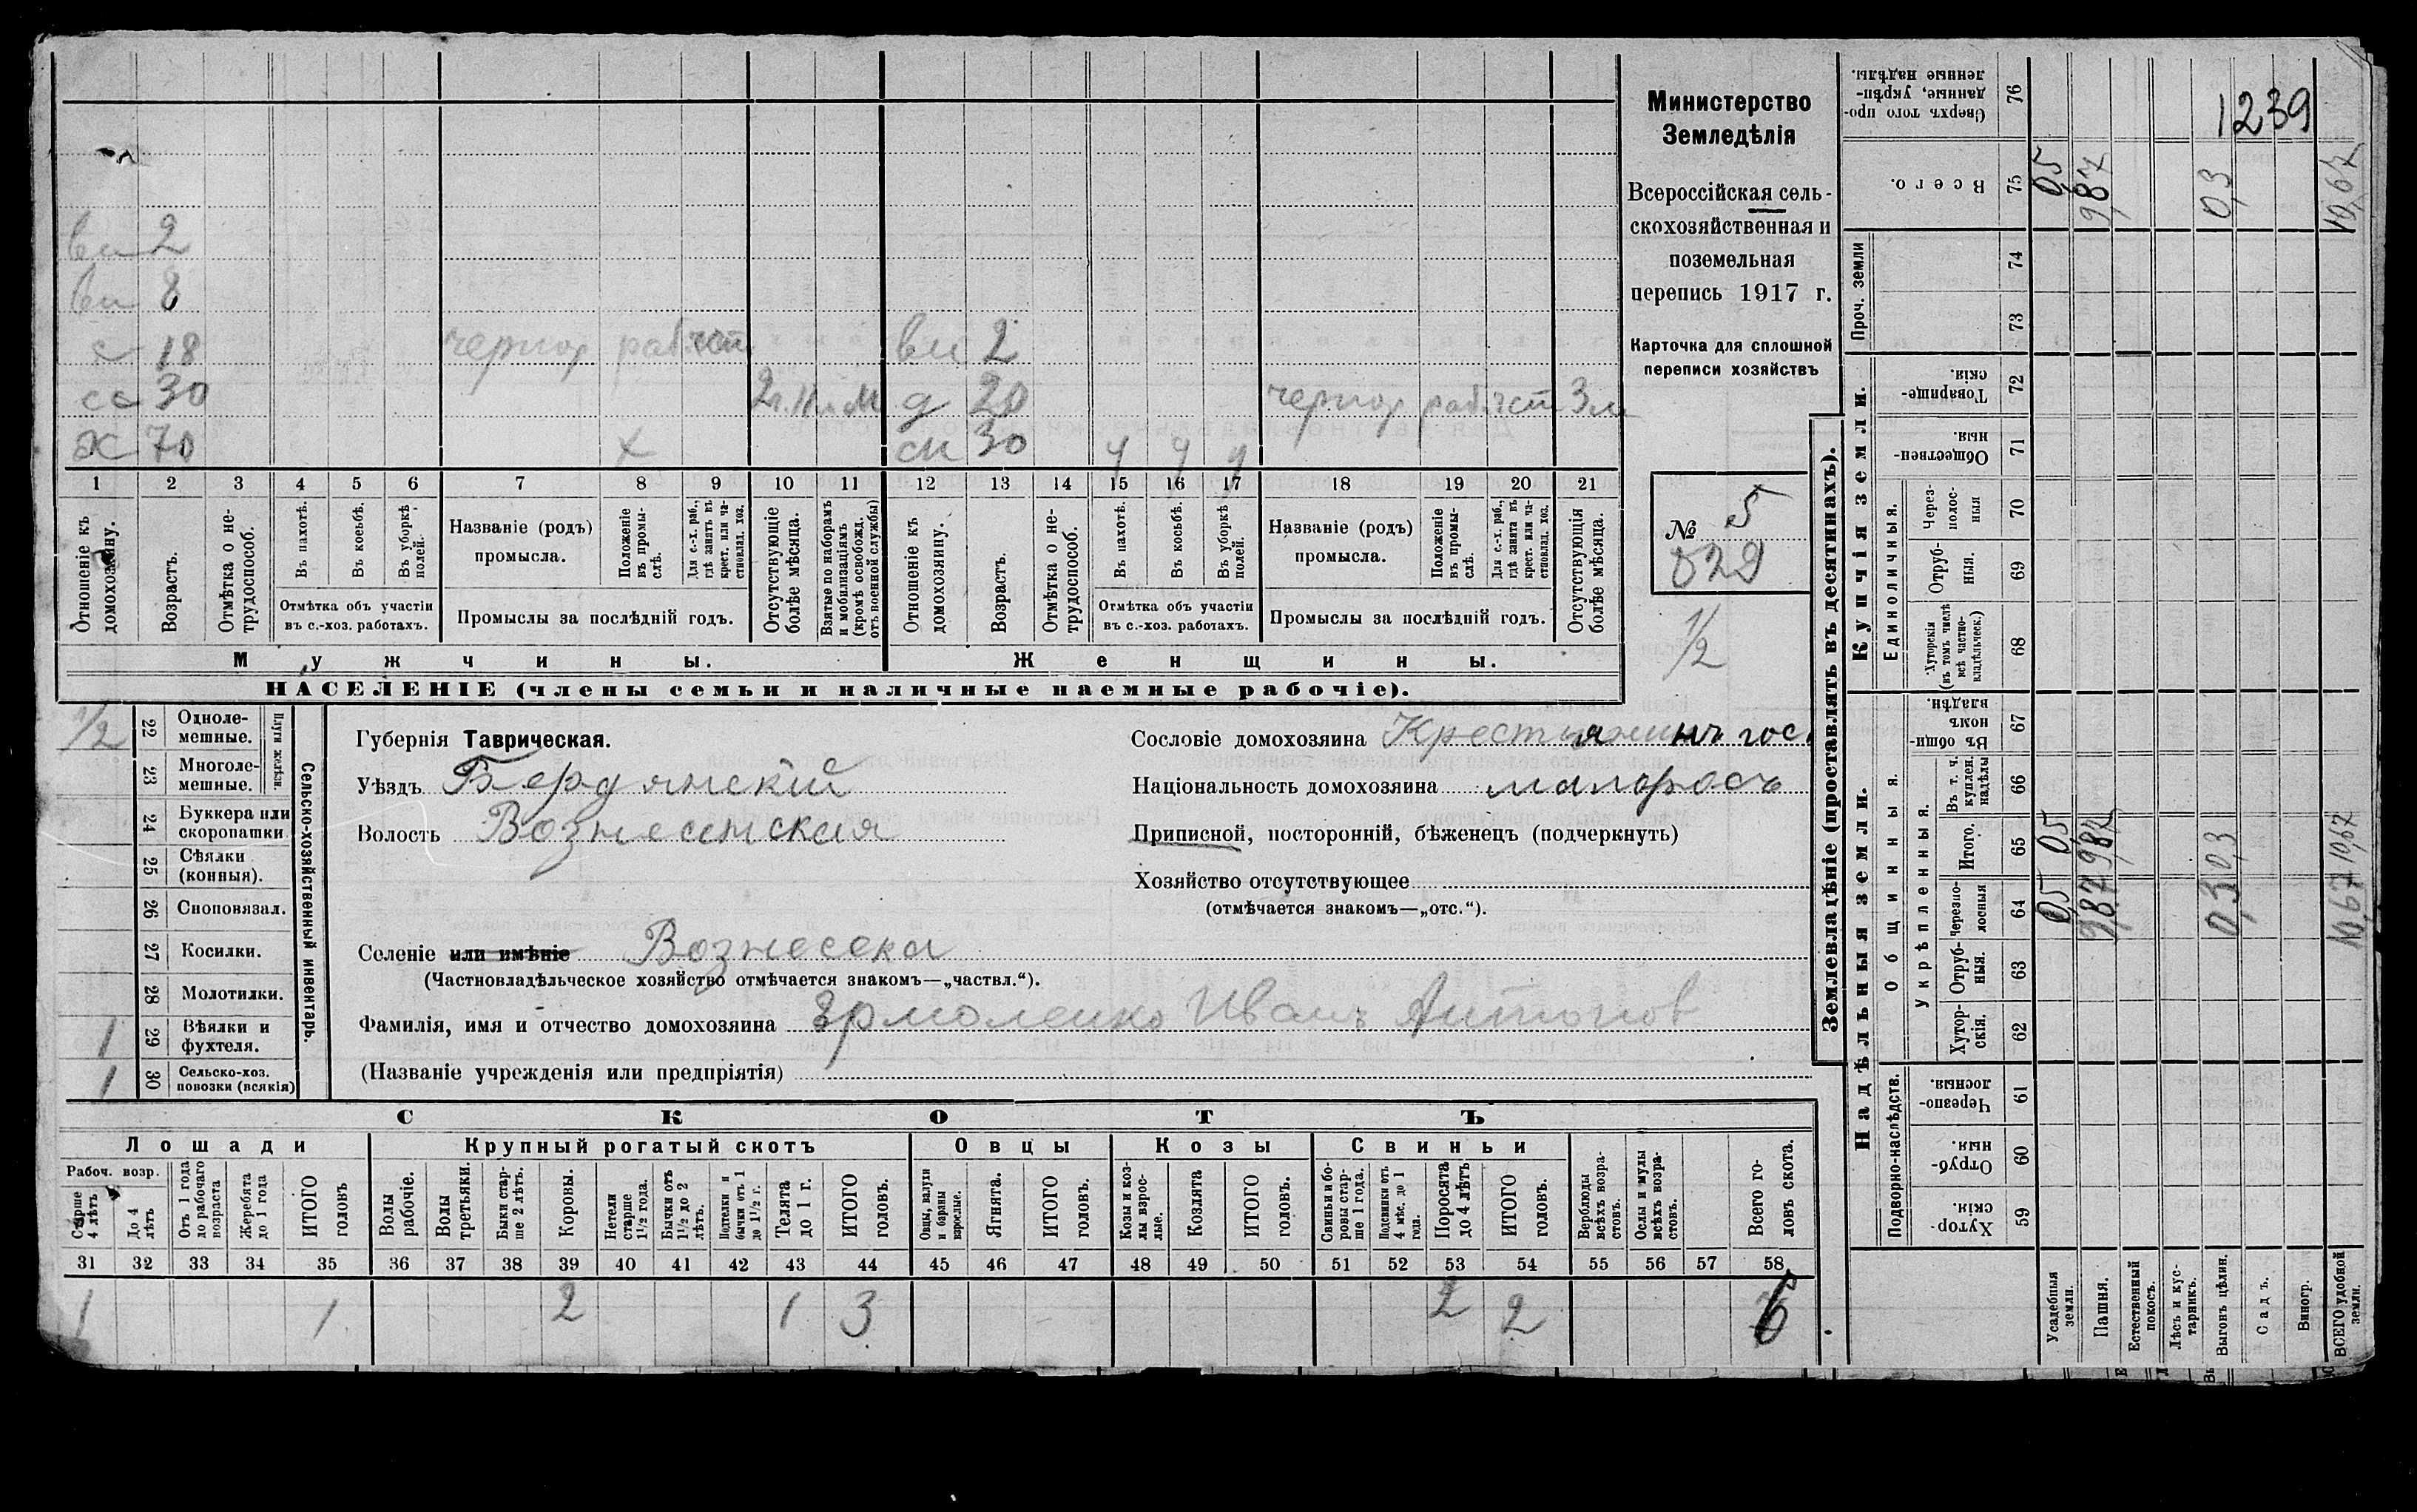 вн 2
вн 8
с 18 чернор рабчст вн 2
сс 30 д 20 чернор рабчст 3 м
Х 70 х сн 30 у у у
1 2 3 4 5 6 7 8 9 10 11 12 13 14 15 16 17 18 19 20 21
Отношеніе къ домохозяину.
Возрастъ.
Отмѣтка о нетрудоспособ.
Въ пахотѣ.
Въ косьбѣ.
Въ уборкѣ полей.
Отмѣтка объ участіи
въ с.-хоз. работахъ.
Названіе (родъ)
промысла.
Положеніе въ промыслѣ.
Для с.-х. раб., гдѣ занятъ въ крест. или частновлад. хоз.
Промыслы за послѣдній годъ.
Отсутствующіе болѣе мѣсяца.
Взятые по наборамъ и мобилизаціямъ (кромѣ освобожд. отъ военной службы)
Отношеніе къ домохозяину.
Возрастъ.
Отмѣтка о нетрудоспособ.
Въ пахотѣ.
Въ косьбѣ.
Въ уборкѣ полей.
Отмѣтка объ участіи
въ с.-хоз. работахъ.
Названіе (родъ)
промысла.
Положеніе въ промыслѣ.
Для с.-х. раб., гдѣ занята въ крест. или частновлад. хоз.
Промыслы за послѣдній годъ.
Отсутствующія болѣе мѣсяца.
Мужчины. Женщины.
НАСЕЛЕНІЕ (члены семьи и наличные наемные рабочіе).
Министерство
Земледѣлія
Всероссійская сель-
скохозяйственная и
поземельная
перепись 1917 г.
Карточка для сплошной
переписи хозяйствъ
№ 5
829
1/2
1/2 22 Одноле-
мешные.
Плуги желѣзн.
23 Многоле-
мешные.
24 Буккера или
скоропашки
25 Сѣялки
(конныя).
26 Сноповязал.
27 Косилки.
28 Молотилки.
1 29 Вѣялки и
фухтеля.
1 30 Сельско-хоз.
повозки (всякія)
Сельско-хозяйственный инвентарь.
Губернія Таврическая.
Уѣздъ Бердянскій
Волость Вознесенская
Селеніе или имѣніе Вознесенка
(Частновладѣльческое хозяйство отмѣчается знакомъ—„частвл.“).
Фамилія, имя и отчество домохозяина Ярмоленко Иванъ Антонов
(Названіе учрежденія или предпріятія)
Сословіе домохозяина Крестьянинъ гос.
Національность домохозяина малоросъ
Приписной, посторонній, бѣженецъ (подчеркнуть)
Хозяйство отсутствующее
(отмѣчается знакомъ—„отс.“).
СКОТЪ
Лошади Крупный рогатый скотъ Овцы Козы Свиньи
Рабоч. возр.
Старше 4 лѣтъ
До 4 лѣтъ
Отъ 1 года до рабочаго возраста
Жеребята до 1 года
ИТОГО головъ
Волы рабочіе.
Волы третьяки.
Быки старше 2 лѣтъ.
Коровы.
Нетели старше 1½ года.
Бычки отъ 1½ до 2 лѣтъ.
Подтелки и бычки отъ 1 до 1½ г.
Телята до 1 г.
ИТОГО головъ.
Овцы, валухи и бараны взрослые.
Ягнята.
ИТОГО головъ.
Козы и козлы взрослые.
Козлята
ИТОГО головъ.
Свиньи и боровы старше 1 года.
Подсвинки отъ 4 мѣс. до 1 года.
Поросята до 4 лѣтъ
ИТОГО головъ.
Верблюды всѣхъ возрастовъ.
Ослы и мулы всѣхъ возрастовъ.
Всего головъ скота.
31 32 33 34 35 36 37 38 39 40 41 42 43 44 45 46 47 48 49 50 51 52 53 54 55 56 57 58
1 1 2 1 3 2 2 6
Землевладѣніе (проставлять въ десятинахъ).
1239
Сверхъ того проданные, укрѣпленные надѣлы. 76
Всего. 75 0,5 9,87 0,3 10,67
Проч. земли 74
73
Купчія земли.
Товарищескія. 72
Общественныя. 71
Единоличныя.
Черезполосныя 70
Отрубныя. 69
Хуторскія (въ томъ числѣ всѣ частновладѣльческ.) 68
Надѣльныя земли.
Общинныя
Въ общинномъ владѣн. 67
Укрѣпленныя.
Въ т. ч. куплен. надѣлы 66
Итого. 65 0,5 9,87 0,3 10,67
Черезполосныя 64 0,5 9,87 0,3 10,67
Отрубныя. 63
Хуторскія. 62
Подворно-наслѣдств.
Черезполосныя. 61
Отрубныя. 60
Хуторскія. 59
Усадебныя земли.
Пашня.
Естественный покосъ.
Лѣсъ и кустарникъ.
Выгонъ цѣлин.
Садъ.
Виногр.
ВСЕГО удобной земли.